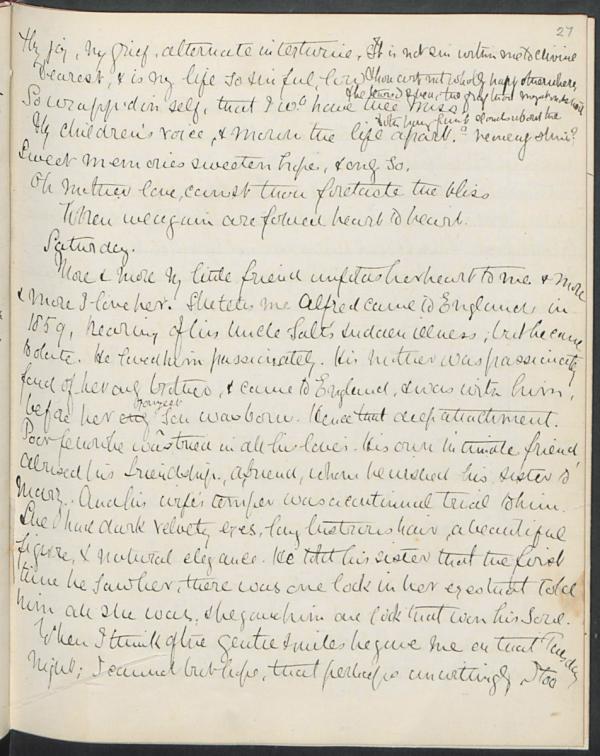 27
My joy, my grief, alternate intertwine, It is not sin within me to divine
Dearest, & is my life so sinful, low Thou art not wholly happy otherwhere,
So wrapp'd in self, that I wd have thee miss
My children's voice, & mourn the life apart.
Sweet memories sweeten hope, & only so.
Oh Mother love, canst thou foretaste the bliss
When we again are folded heart to heart.
Saturday.
More & More my little friend unfolds her heart to me & more
& more I love her. She tells me Alfred came to England in
1859, hearing of his Uncle Salt's sudden illness; but he came
too late. He loved him passionately. His mother was passionately
fond of her only brother, & came to England, & was with him,
before her only youngest Son was born. Hence that deep attachment.
Poor fellow he was tried in all his loves. His own intimate friend
abused his friendship, a friend, whom he wished his sister to
Marry. And his wife's temper was a continual trial to him.
She had dark velvety eyes, long lustrous hair, a beautiful
figure, & natural elegance. He told his sister that the first
time he saw her, there was one look in her eyes that told
him all she was, she gave him one look that won his Soul.
When I think of the gentle smiles he gave me on that Tuesday
Night; I cannot but hope, that perhaps unwittingly, I too